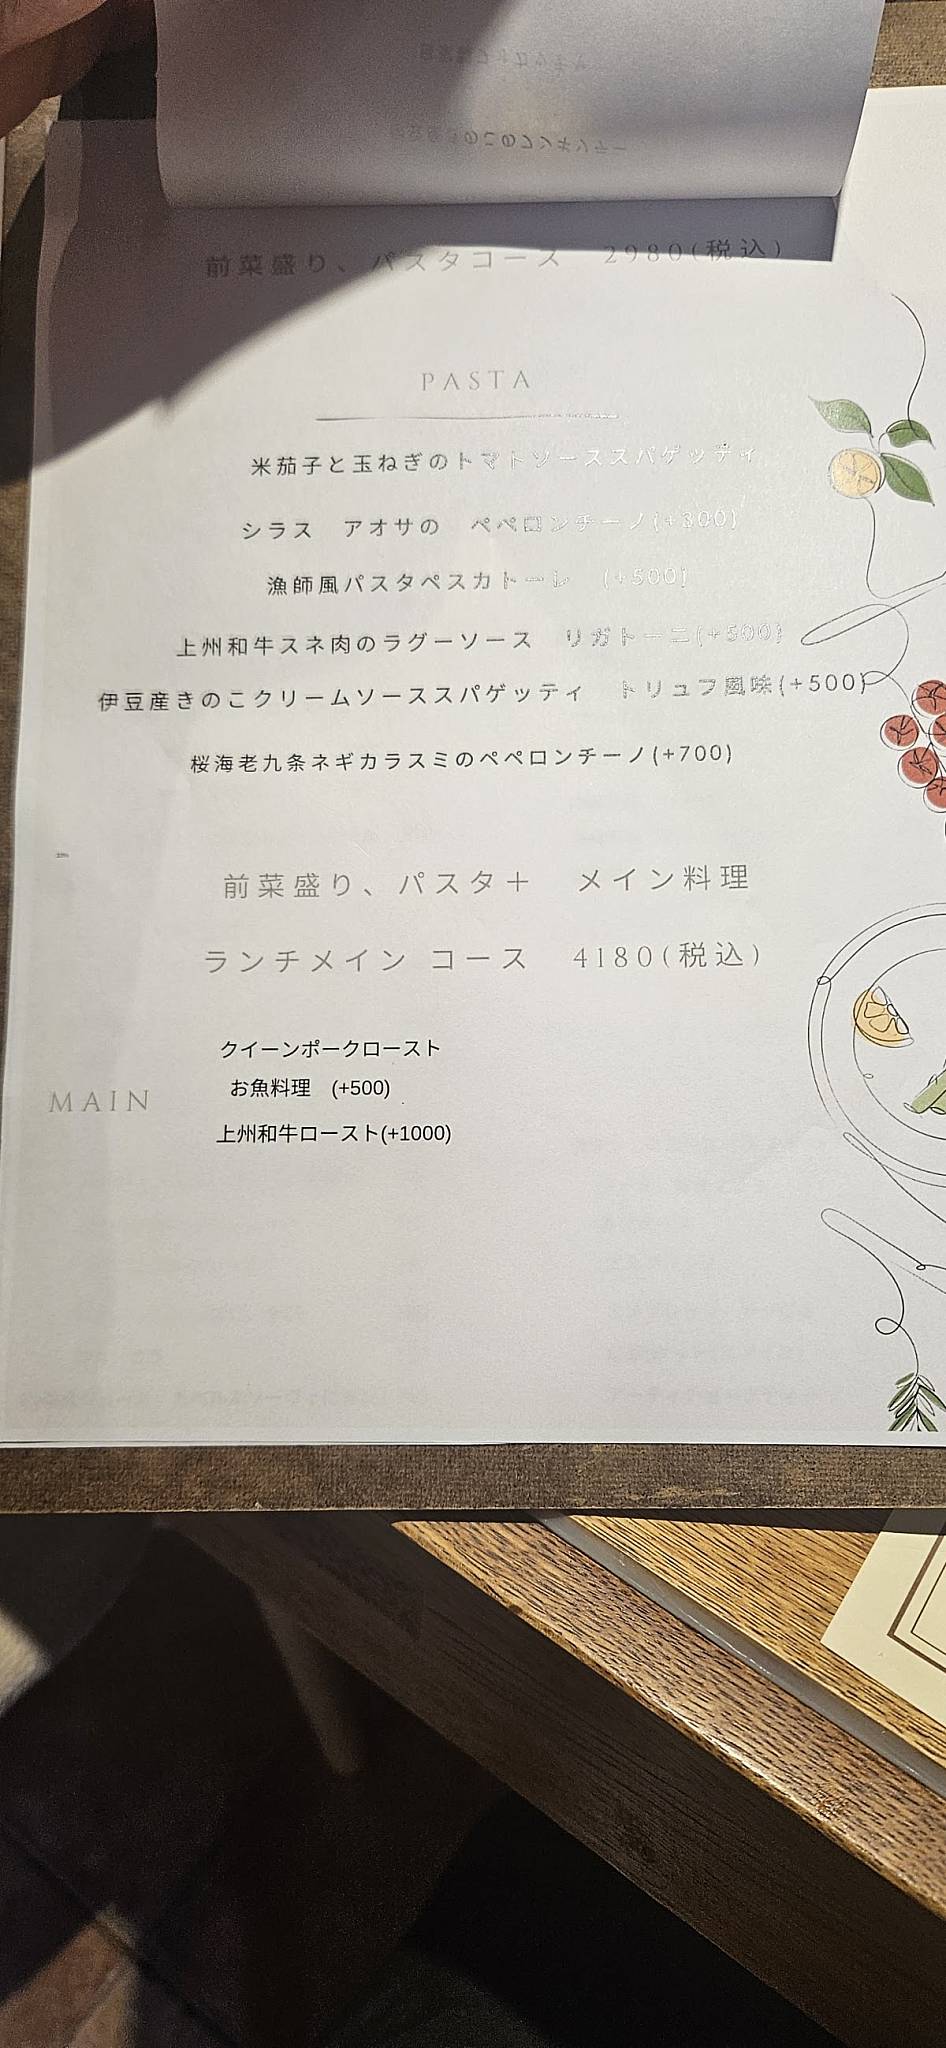 前菜盛り、パスタコース　2980(税込)
PASTA
米茄子と玉ねぎのトマトソーススパゲッティ
シラス　アオサの　ペペロンチーノ(+300)
漁師風パスタペスカトーレ　(+500)
上州和牛スネ肉のラグーソース　リガトーニ(+500)
伊豆産きのこクリームソーススパゲッティ　トリュフ風味(+500)
桜海老九条ネギカラスミのペペロンチーノ(+700)
前菜盛り、パスタ＋　メイン料理
ランチメイン コース　4180(税込)
MAIN
クイーンポークロースト
お魚料理　(+500)
上州和牛ロースト(+1000)